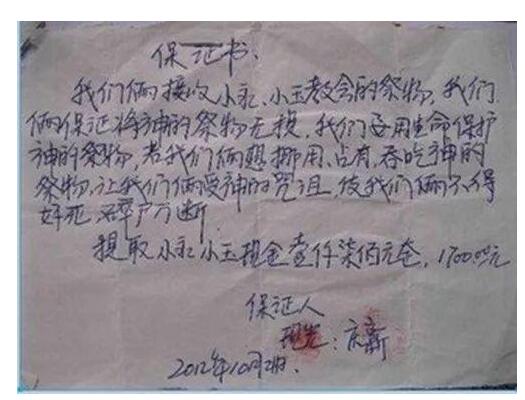 保证书
我们俩接收小永、小玉教会的祭物,我们
俩保证将神的祭物无损,我们要用生命保护
神的祭物,若我们俩想挪用、占有、吞吃神的
祭物,让我们俩受神的咒诅,使我们俩不得
好死
提取小永小玉现金壹仟柒佰元
保证人
2012年10月2